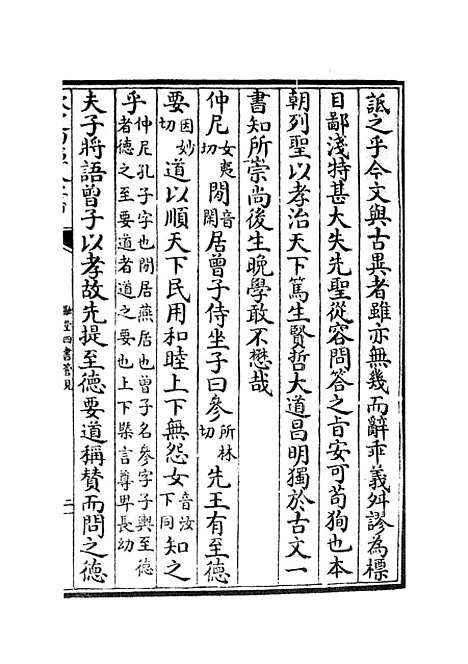 詆之乎今文與古異者雖亦無幾而辭乖義舛謬為標
目鄙淺特甚大失先聖從容問答之旨安可苟狥也本
朝列聖以孝治天下篤生賢哲大道昌明獨於古文一
書知所崇尚後生晚學敢不懋哉
仲尼女夷切閒音閑居曾子侍坐子曰參所林切先王有至德
要因妙切道以順天下民用和睦上下無怨女音汝下同知之
乎仲尼孔子字也閒居燕居也曾子名參字子輿至德者德之至要道者道之要也上下槩言尊卑長幼
夫子將語曾子以孝故先提至德要道稱賛而問之德
四書管見